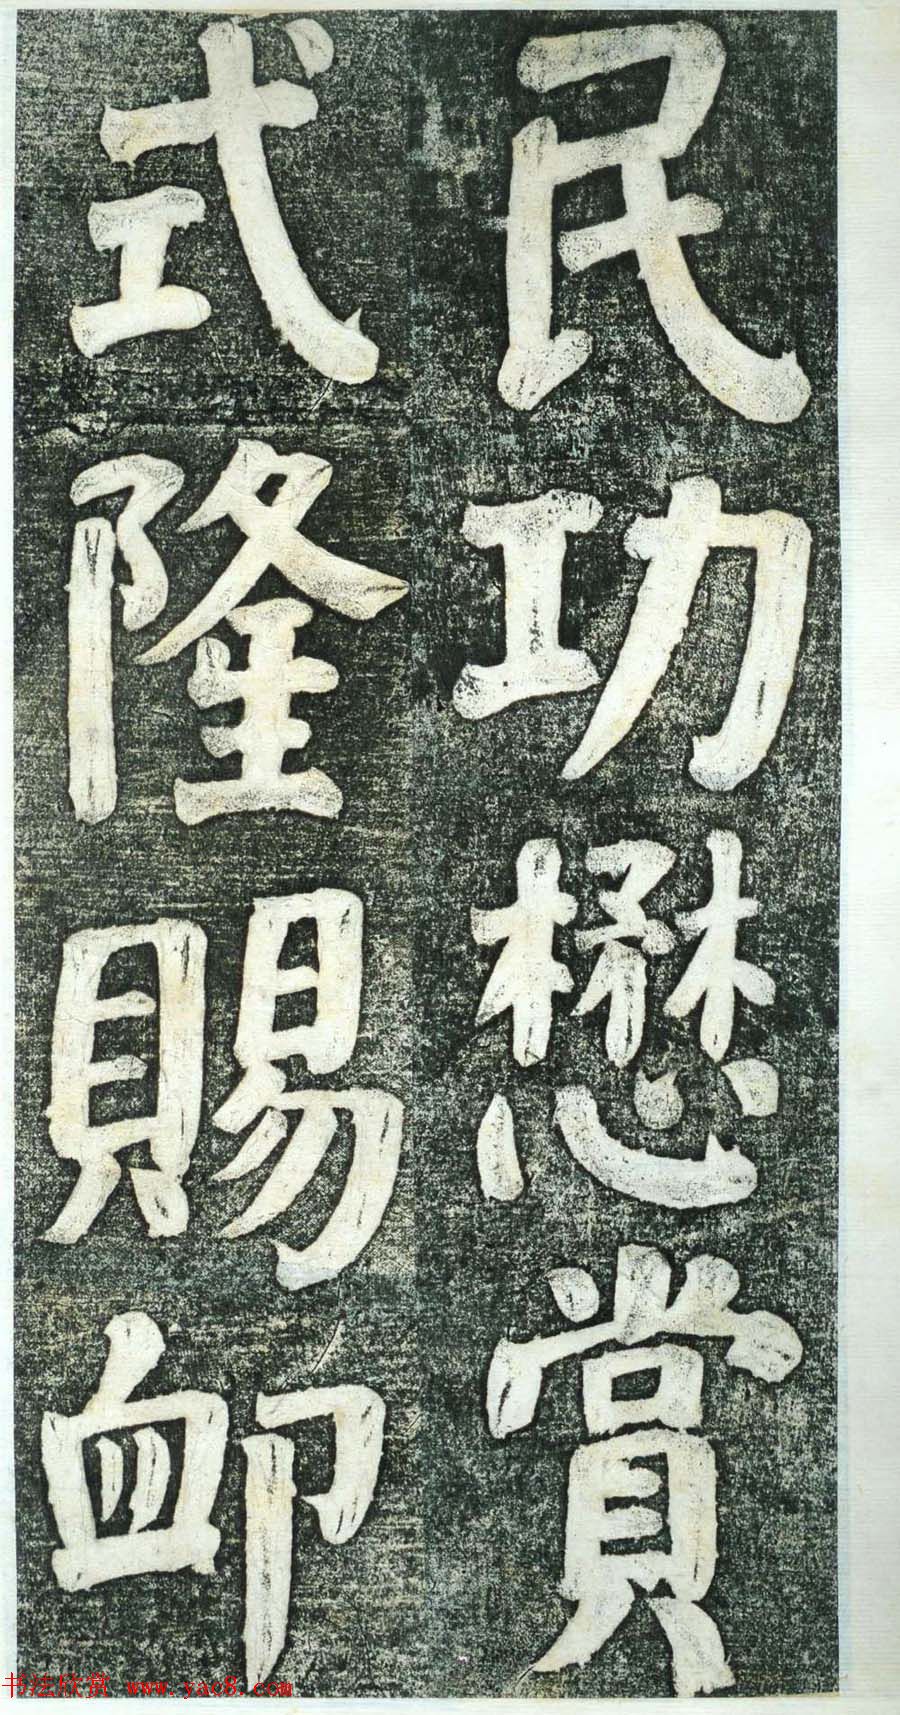 民功懋賞
式隆賜卹
书法欣赏 www.yac8.com